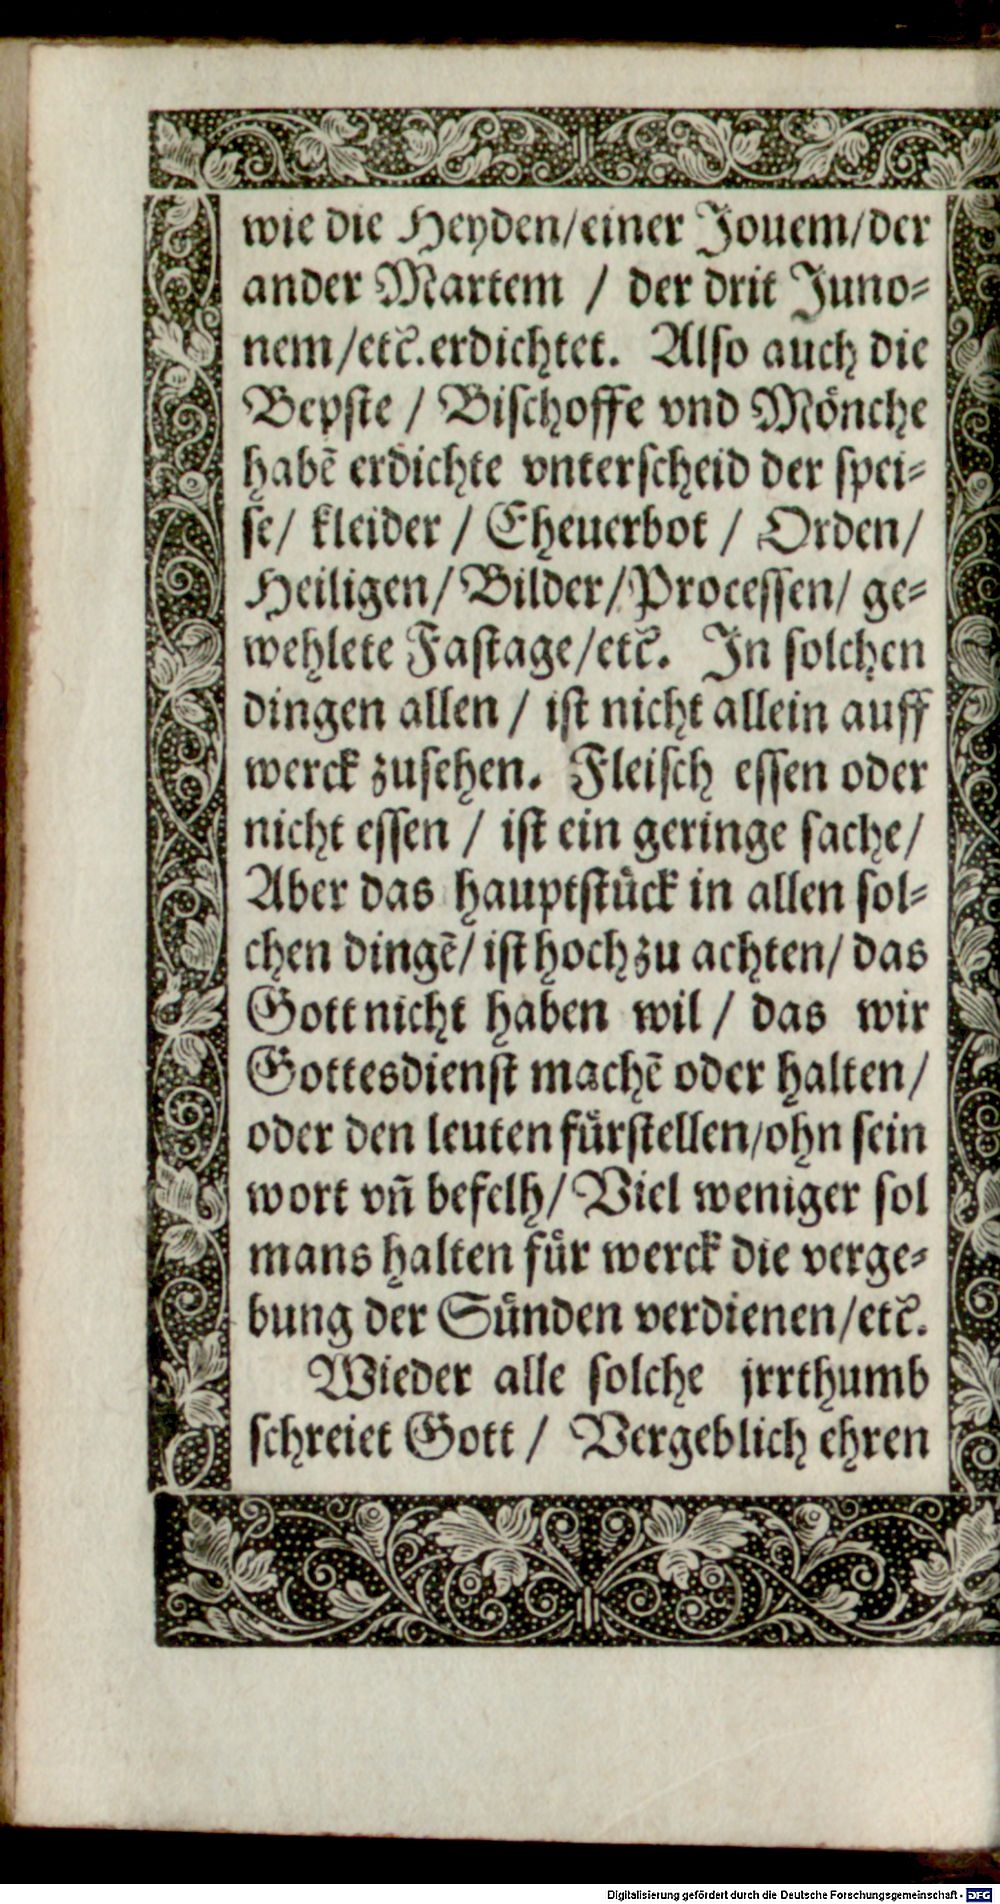 wie die Heyden/einer Jouem/der
ander Martem / der drit Juno⸗
nem/etc̃. erdichtet. Also auch die
Bepste / Bischoffe vnd Mönche
habẽ erdichte vnterscheid der spei⸗
se/ kleider / Eheuerbot / Orden/
Heiligen/ Bilder/ Processen/ ge⸗
wehlete Fastage/etc̃. In solchen
dingen allen / ist nicht allein auff
werck zusehen. Fleisch essen oder
nicht essen / ist ein geringe sache/
Aber das hauptstück in allen sol⸗
chen dingẽ/ ist hoch zu achten/ das
Gott nicht haben wil / das wir
Gottesdienst machẽ oder halten/
oder den leuten fürstellen/ohn sein
wort vñ befelh/ Viel weniger sol
mans halten für werck die verge⸗
bung der Sünden verdienen/etc̃.
Wieder alle solche jrrthumb
schreiet Gott / Vergeblich ehren
Digitalisierung gefördert durch die Deutsche Forschungsgemeinschaft - DFG